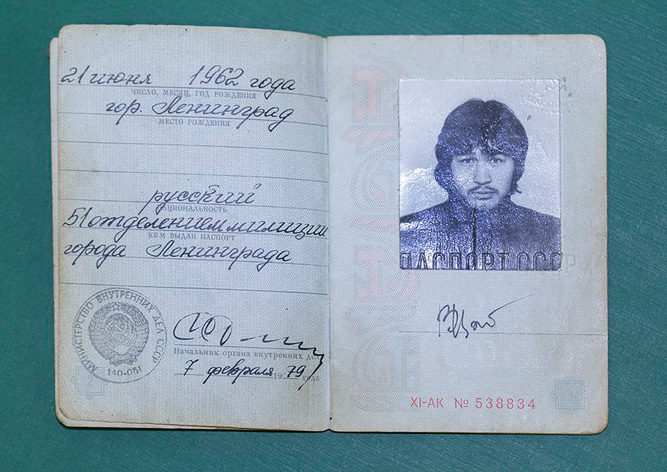 21 июня 1962 года
ЧИСЛО, МЕСЯЦ, ГОД РОЖДЕНИЯ
гор. Ленинград
МЕСТО РОЖДЕНИЯ
русский
НАЦИОНАЛЬНОСТЬ
51 отделением милиции
КЕМ ВЫДАН ПАСПОРТ
города Ленинграда
МИНИСТЕРСТВО ВНУТРЕННИХ ДЕЛ СССР
140-051
Начальник органа внутренних дел
7 февраля 1979 года
ПАСПОРТ СССР
XI-АК № 538834